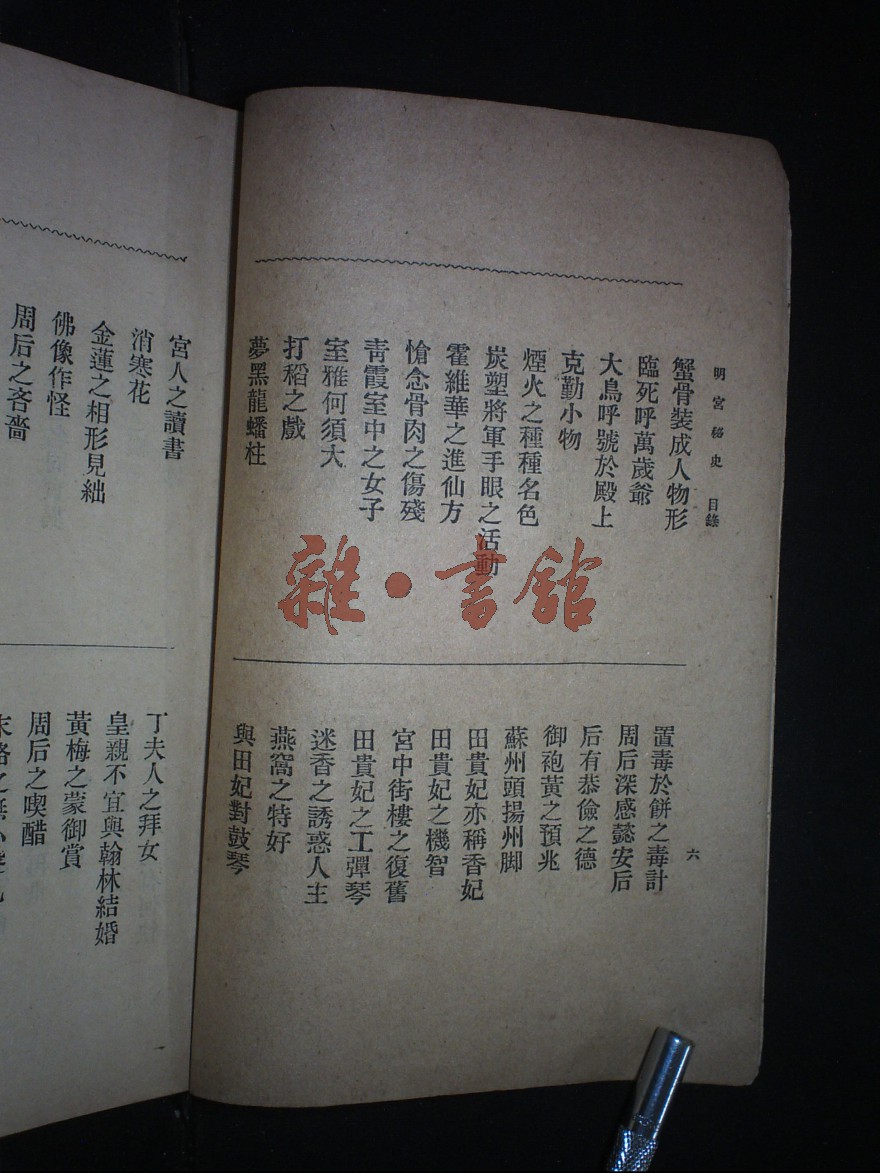 明宮秘史 目錄
六
蟹骨裝成人物形
臨死呼萬歲爺
大鳥呼號於殿上
克勤小物
煙火之種種名色
炭塑將軍手眼之活動
霍維華之進仙方
愴念骨肉之傷殘
靑霞室中之女子
室雅何須大
打稻之戲
夢黑龍蟠柱
置毒於餅之毒計
周后深感懿安后
后有恭儉之德
御袍黃之預兆
蘇州頭揚州脚
田貴妃亦稱香妃
田貴妃之機智
宮中街樓之復舊
田貴妃之工彈琴
迷香之誘惑人主
燕窩之特好
與田妃對鼓琴
宮人之讀書
消寒花
金蓮之相形見絀
佛像作怪
周后之吝嗇
丁夫人之拜女
皇親不宜與翰林結婚
黃梅之蒙御賞
周后之喫醋
雜·書館